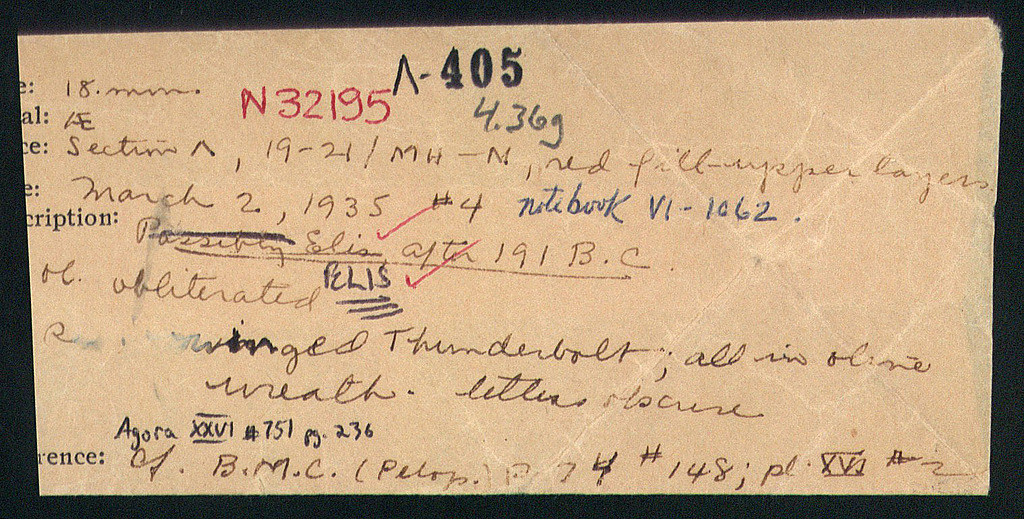 Λ-405
e: 18. mm.
N32195
4.36g
al: Æ
ce: Section Λ, 19-21/ΜΗ-Ν, red fill-upper layers
e: March 2, 1935 #4 notebook VI-1062.
cription: Possibly Elis after 191 B.C.
ob. obliterated ELIS
R winged Thunderbolt; all in olive
wreath. letters obscure
Agora XXVI #751 pg. 236
rence: Cf. B.M.C. (Pelop.) p 74 #148; pl. XVI #2